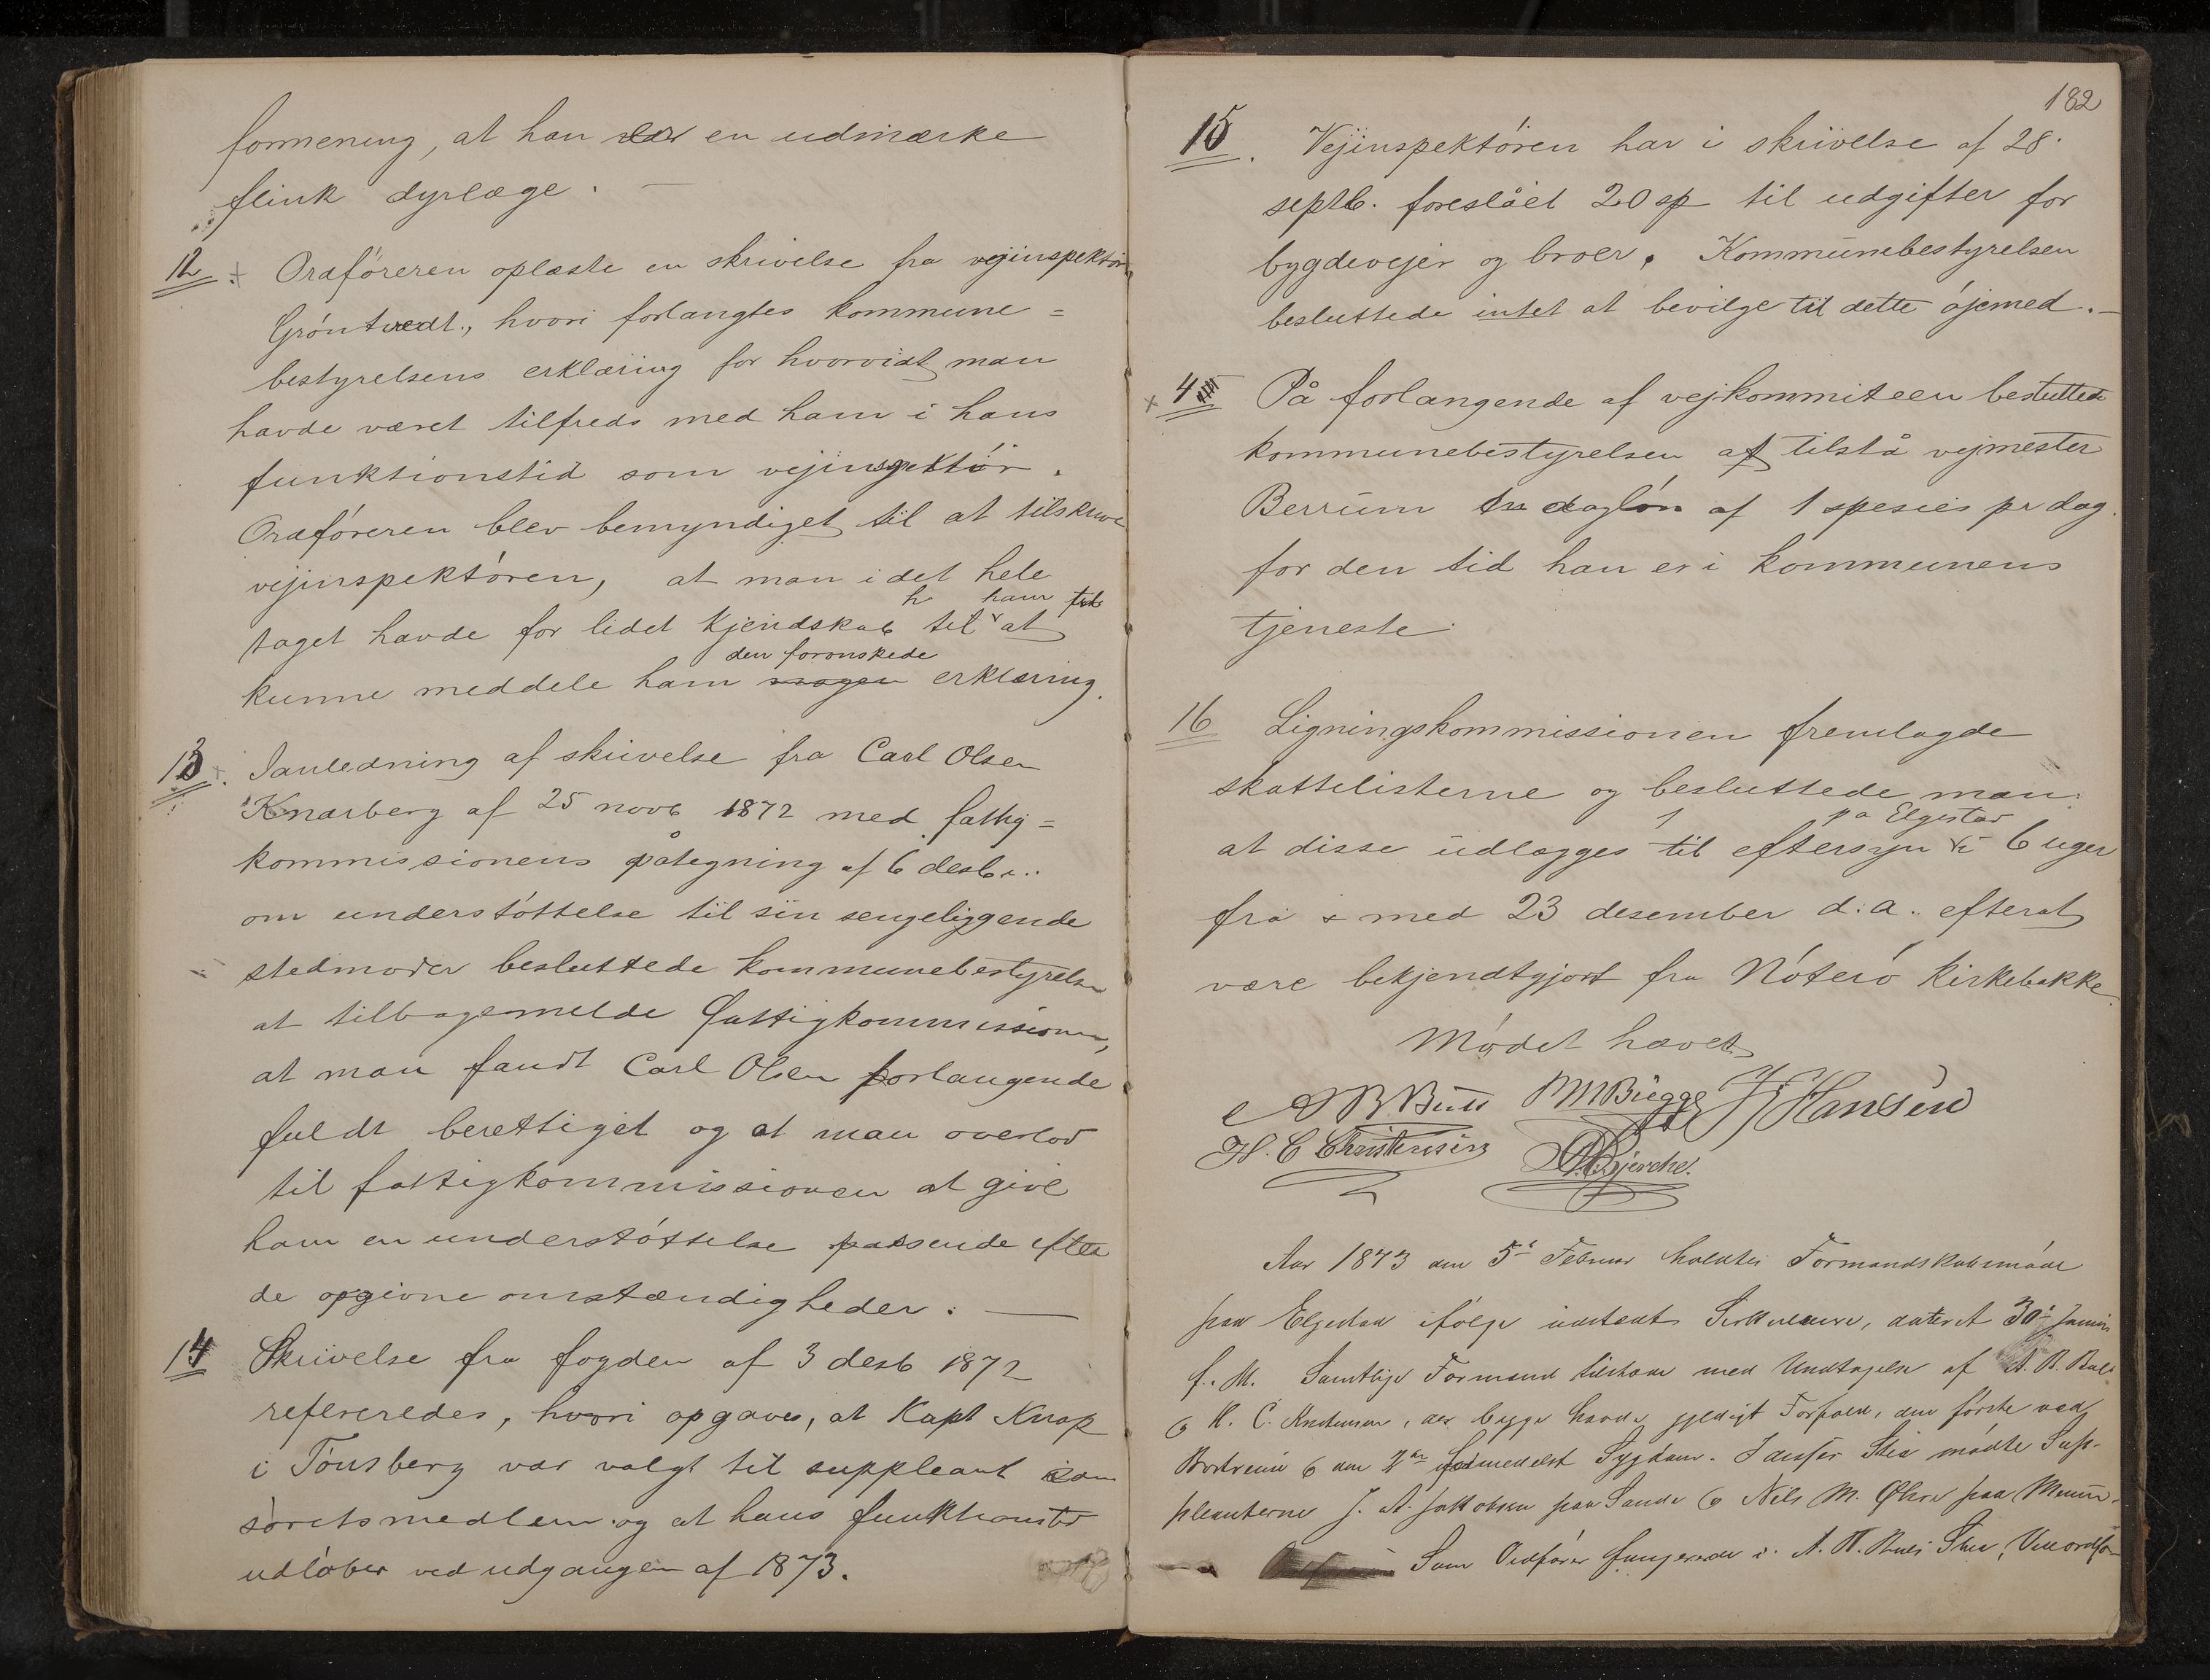 formening, at han er en udmærke
flink dyrlæge. —
12. Ordføreren oplæste en skrivelse fra vejinspektör
Gröntvedt, hvori forlangtes kommune=
bestyrelsens erklæring for hvorvidt man
havde været tilfreds med ham i hans
funktionstid som vejinspektör.
Ordføreren blev bemyndiget til at tilskrive
vejinspektören, at man i det hele
taget havde for lidet kjendskab til ham til at
kunne meddele ham den forönskede erklæring.
13. Ianledning af skrivelse fra Carl Olsen
Knarberg af 25 novb 1872 med fattig=
kommissionens påtegning af 6 desbr.
om understöttelse til sin sengeliggende
stedmoder besluttede kommunebestyrelsen
at tilbagemelde fattigkommissionen,
at man fandt Carl Olsen forlangende
fuldt berettiget og at man overlod
til fattigkommissionen at give
ham en understöttelse passende efter
de opgivne omstændigheder. —
14 Skrivelse fra fogden af 3 desb 1872
refereredes, hvori opgaves, at Kapt Knap
i Tönsberg var valgt til suppleant som
söretsmedlem og at hans funktionstid
udlöber ved udgangen af 1873.
182
15. Vejinspektören har i skrivelse af 28.
septb. foreslået 20 sp til udgifter for
bygdevejer og broer. Kommunebestyrelsen
besluttede intet at bevilge til dette öjemed. —
4 På forlangende af vejkommiteen besluttede
kommunebestyrelsen at tilstå vejmester
Berrum en daglön af 1 spesies pr dag
for den tid han er i kommunens
tjeneste
16 Ligningskommissionen fremlagde
skattelisterne og besluttede man
at disse udlægges til eftersyn på Elgestad i 6 uger
fra & med 23 desember d: a. efterat
være bekjendtgjort fra Nöterö Kirkebakke
Mödet hævet
A B Bull M Bugge H Hansen
H. C Christensen Bjerche.
Aar 1873 den 5te Februar holdtes Formandskabsmöde
paa Elgestad ifölge udstedt Sirkulære, dateret 30te Januar
f. M. Samtlige Formænd tilstede med Undtagelse af A. B. Bull
& H. C. Kristensen, der begge havde gyldigt Forfald, den förste ved
Bortreise & den 2den formedelst Sygdom. I deres Sted mödte Sup-
pleanterne J. A. Jakobsen paa Sande & Nils M. Öhre paa
Som Ordförer fungerede i A. B. Bulls Sted, Viceordför